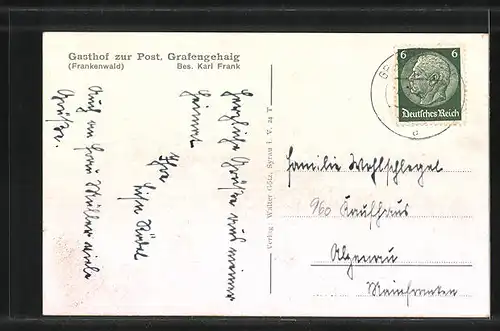 Gasthof zur Post, Grafengehaig
(Frankenwald) Bes. Karl Frank
Herzliche Grüße aus meiner
Heimat
Ihre
Auch an Frau Müller viele
Grüße.
Verlag Walter Götz, Syrau i. V. 24 T
6 6
Deutsches Reich
Familie Wohlschlegel
Kaufhaus
Alzenau
Mainfranken